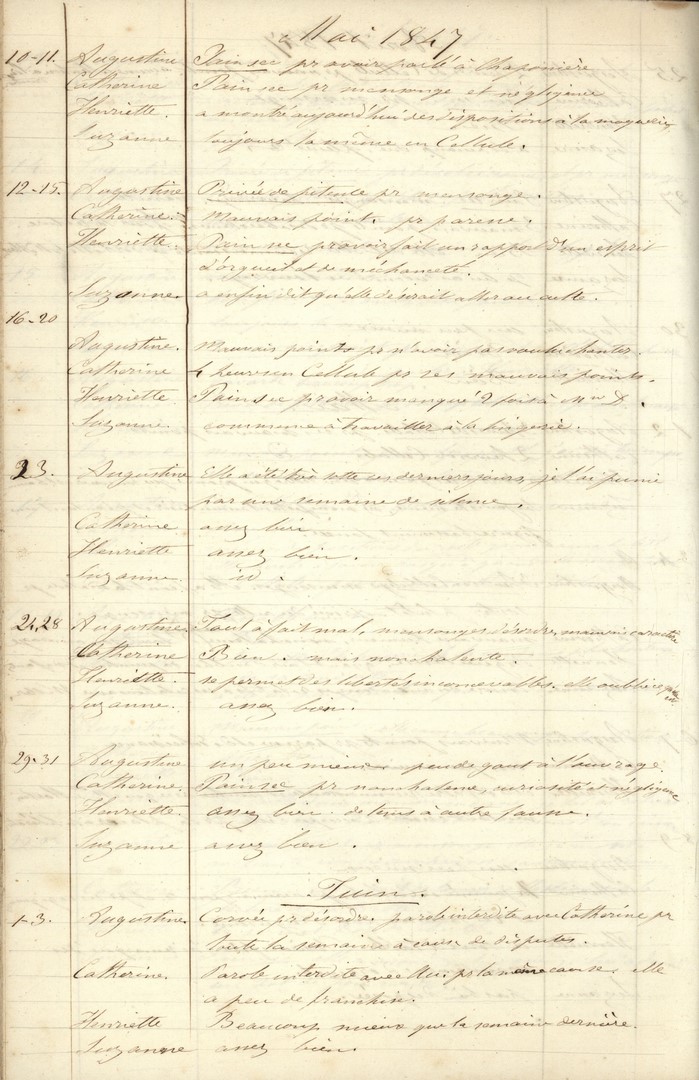 Mai 1847
10-11. Augustine Pain sec pr avoir parlé à Chaponière
Catherine Pain sec pr mensonge et négligence
Henriette. a montré aujourd'hui des dispositions à la moquerie,
Suzanne toujours la même en Cellule.
12-15. Augustine Privée de pitance pr mensonge.
Catherine. Mauvais point. pr paresse.
Henriette. Pain sec pr avoir fait un rapport d'un esprit
d'orgueil et de méchanceté.
Suzanne. a enfin dit qu'elle désirait aller au culte.
16-20
Augustine. Mauvais points pr n'avoir pas voulu chanter.
Catherine 4 heures en Cellule pr ses mauvais points.
Henriette Pain sec pr avoir manqué 2 fois à Mme D.
Suzanne. commence à travailler à la lingerie.
23. Augustine Elle a été très sotte ces derniers jours, je l'ai punie
par une semaine de silence.
Catherine assez bien
Henriette assez bien.
Suzanne. id.
24,28 Augustine. Tout à fait mal, mensonges désordre, mauvais caractère
Catherine Bien. mais nonchalente.
Henriette. se permet des libertés inconcevables. elle oublie
Suzanne. assez bien.
29-31 Augustine un peu mieux peu de gout à l'ouvrage.
Catherine. Pain sec pr nonchalence, curiosité et négligence
Henriette. assez bien. de tems à autre fausse.
Suzanne assez bien.
Juin.
1-3. Augustine. Corvée pr désordre. parole interdite avec Catherine pr
toute la semaine à cause de disputes.
Catherine. Parole interdite avec pr la même cause. elle
a peu de franchise.
Henriette Beaucoup mieux que la semaine dernière.
Suzanne assez bien.